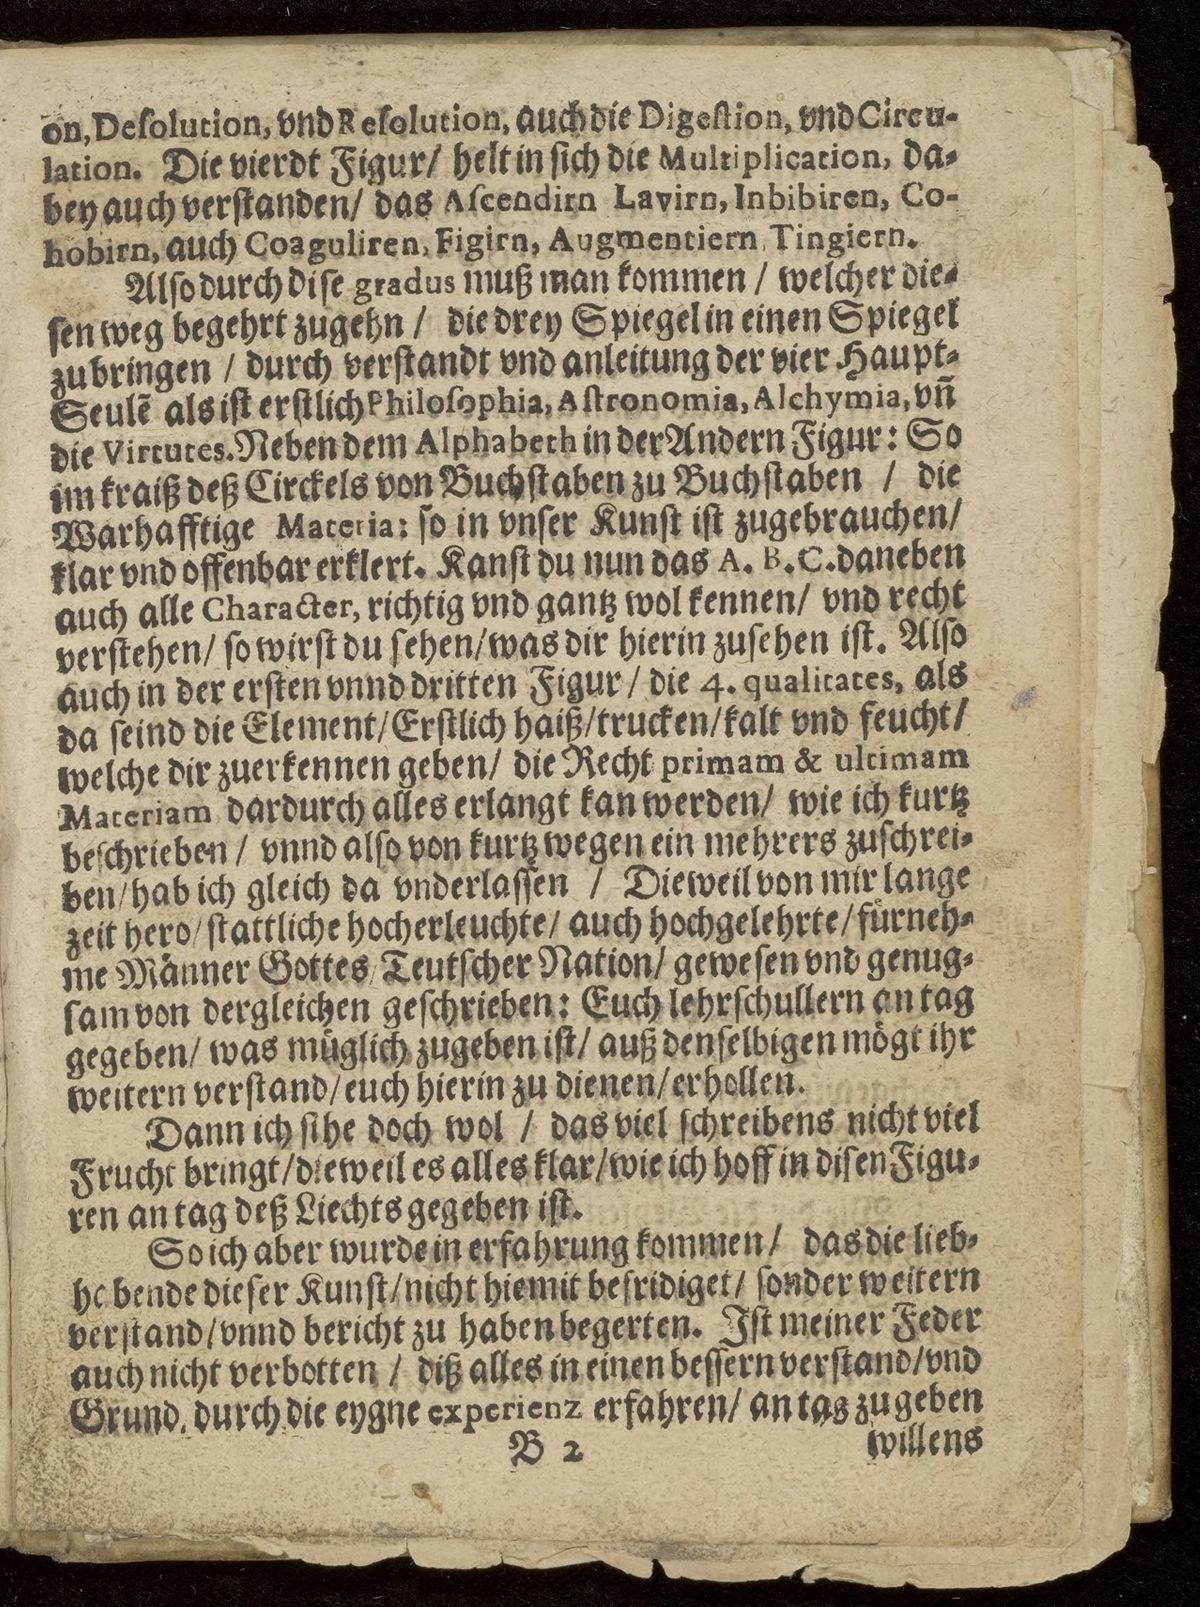 on, Deſolution, vnd Reſolution, auch die Digeſtion, vnd Circu-
lation. Die vierdt Figur/ helt in ſich die Multiplication, da-
bey auch verſtanden/ das Aſcendirn Lavirn, Inbibiren, Co-
hobirn, auch Coaguliren, Figirn, Augmentiern Tingiern.
Alſo durch diſe gradus muß man kommen / welcher die-
ſen weg begehrt zugehn / die drey Spiegel in einen Spiegel
zubringen / durch verſtandt vnd anleitung der vier Haupt-
Seulē als iſt erſtlich Philoſophia, Aſtronomia, Alchymia, vñ
die Virtutes. Neben dem Alphabeth in der Andern Figur: So
im kraiß deß Circkels von Buchſtaben zu Buchſtaben / die
Warhafftige Materia: ſo in vnſer Kunſt iſt zugebrauchen/
klar vnd offenbar erklert. Kanſt du nun das A. B. C. daneben
auch alle Character, richtig vnd gantz wol kennen/ vnd recht
verſtehen/ ſo wirſt du ſehen/ was dir hierin zuſehen iſt. Alſo
auch in der erſten vnnd dritten Figur / die 4. qualitates, als
da ſeind die Element/ Erſtlich haiß/ trucken/ kalt vnd feucht/
welche dir zuerkennen geben/ die Recht primam & ultimam
Materiam dardurch alles erlangt kan werden/ wie ich kurtz
beſchrieben / vnnd alſo von kurtz wegen ein mehrers zuſchrei-
ben/ hab ich gleich da vnderlaſſen / Dieweil von mir lange
zeit hero/ ſtattliche hocherleuchte/ auch hochgelehrte/ fürneh-
me Männer Gottes/ Teutſcher Nation/ geweſen vnd genug-
ſam von dergleichen geſchrieben: Euch lehrſchullern an tag
gegeben/ was müglich zugeben iſt/ auß denſelbigen mögt ihr
weitern verſtand/ euch hierin zu dienen/ erhollen.
Dann ich ſihe doch wol / das viel ſchreibens nicht viel
Frucht bringt/ dieweil es alles klar/ wie ich hoff in diſen Figu-
ren an tag deß Liechts gegeben iſt.
So ich aber wurde in erfahrung kommen / das die lieb-
habende dieſer Kunſt/ nicht hiemit befridiget/ ſonder weitern
verſtand/ vnnd bericht zu haben begerten. Iſt meiner Feder
auch nicht verbotten / diß alles in einen beſſern verſtand/ vnd
Grund, durch die eygne experienz erfahren/ an tag zu geben
B 2 willens